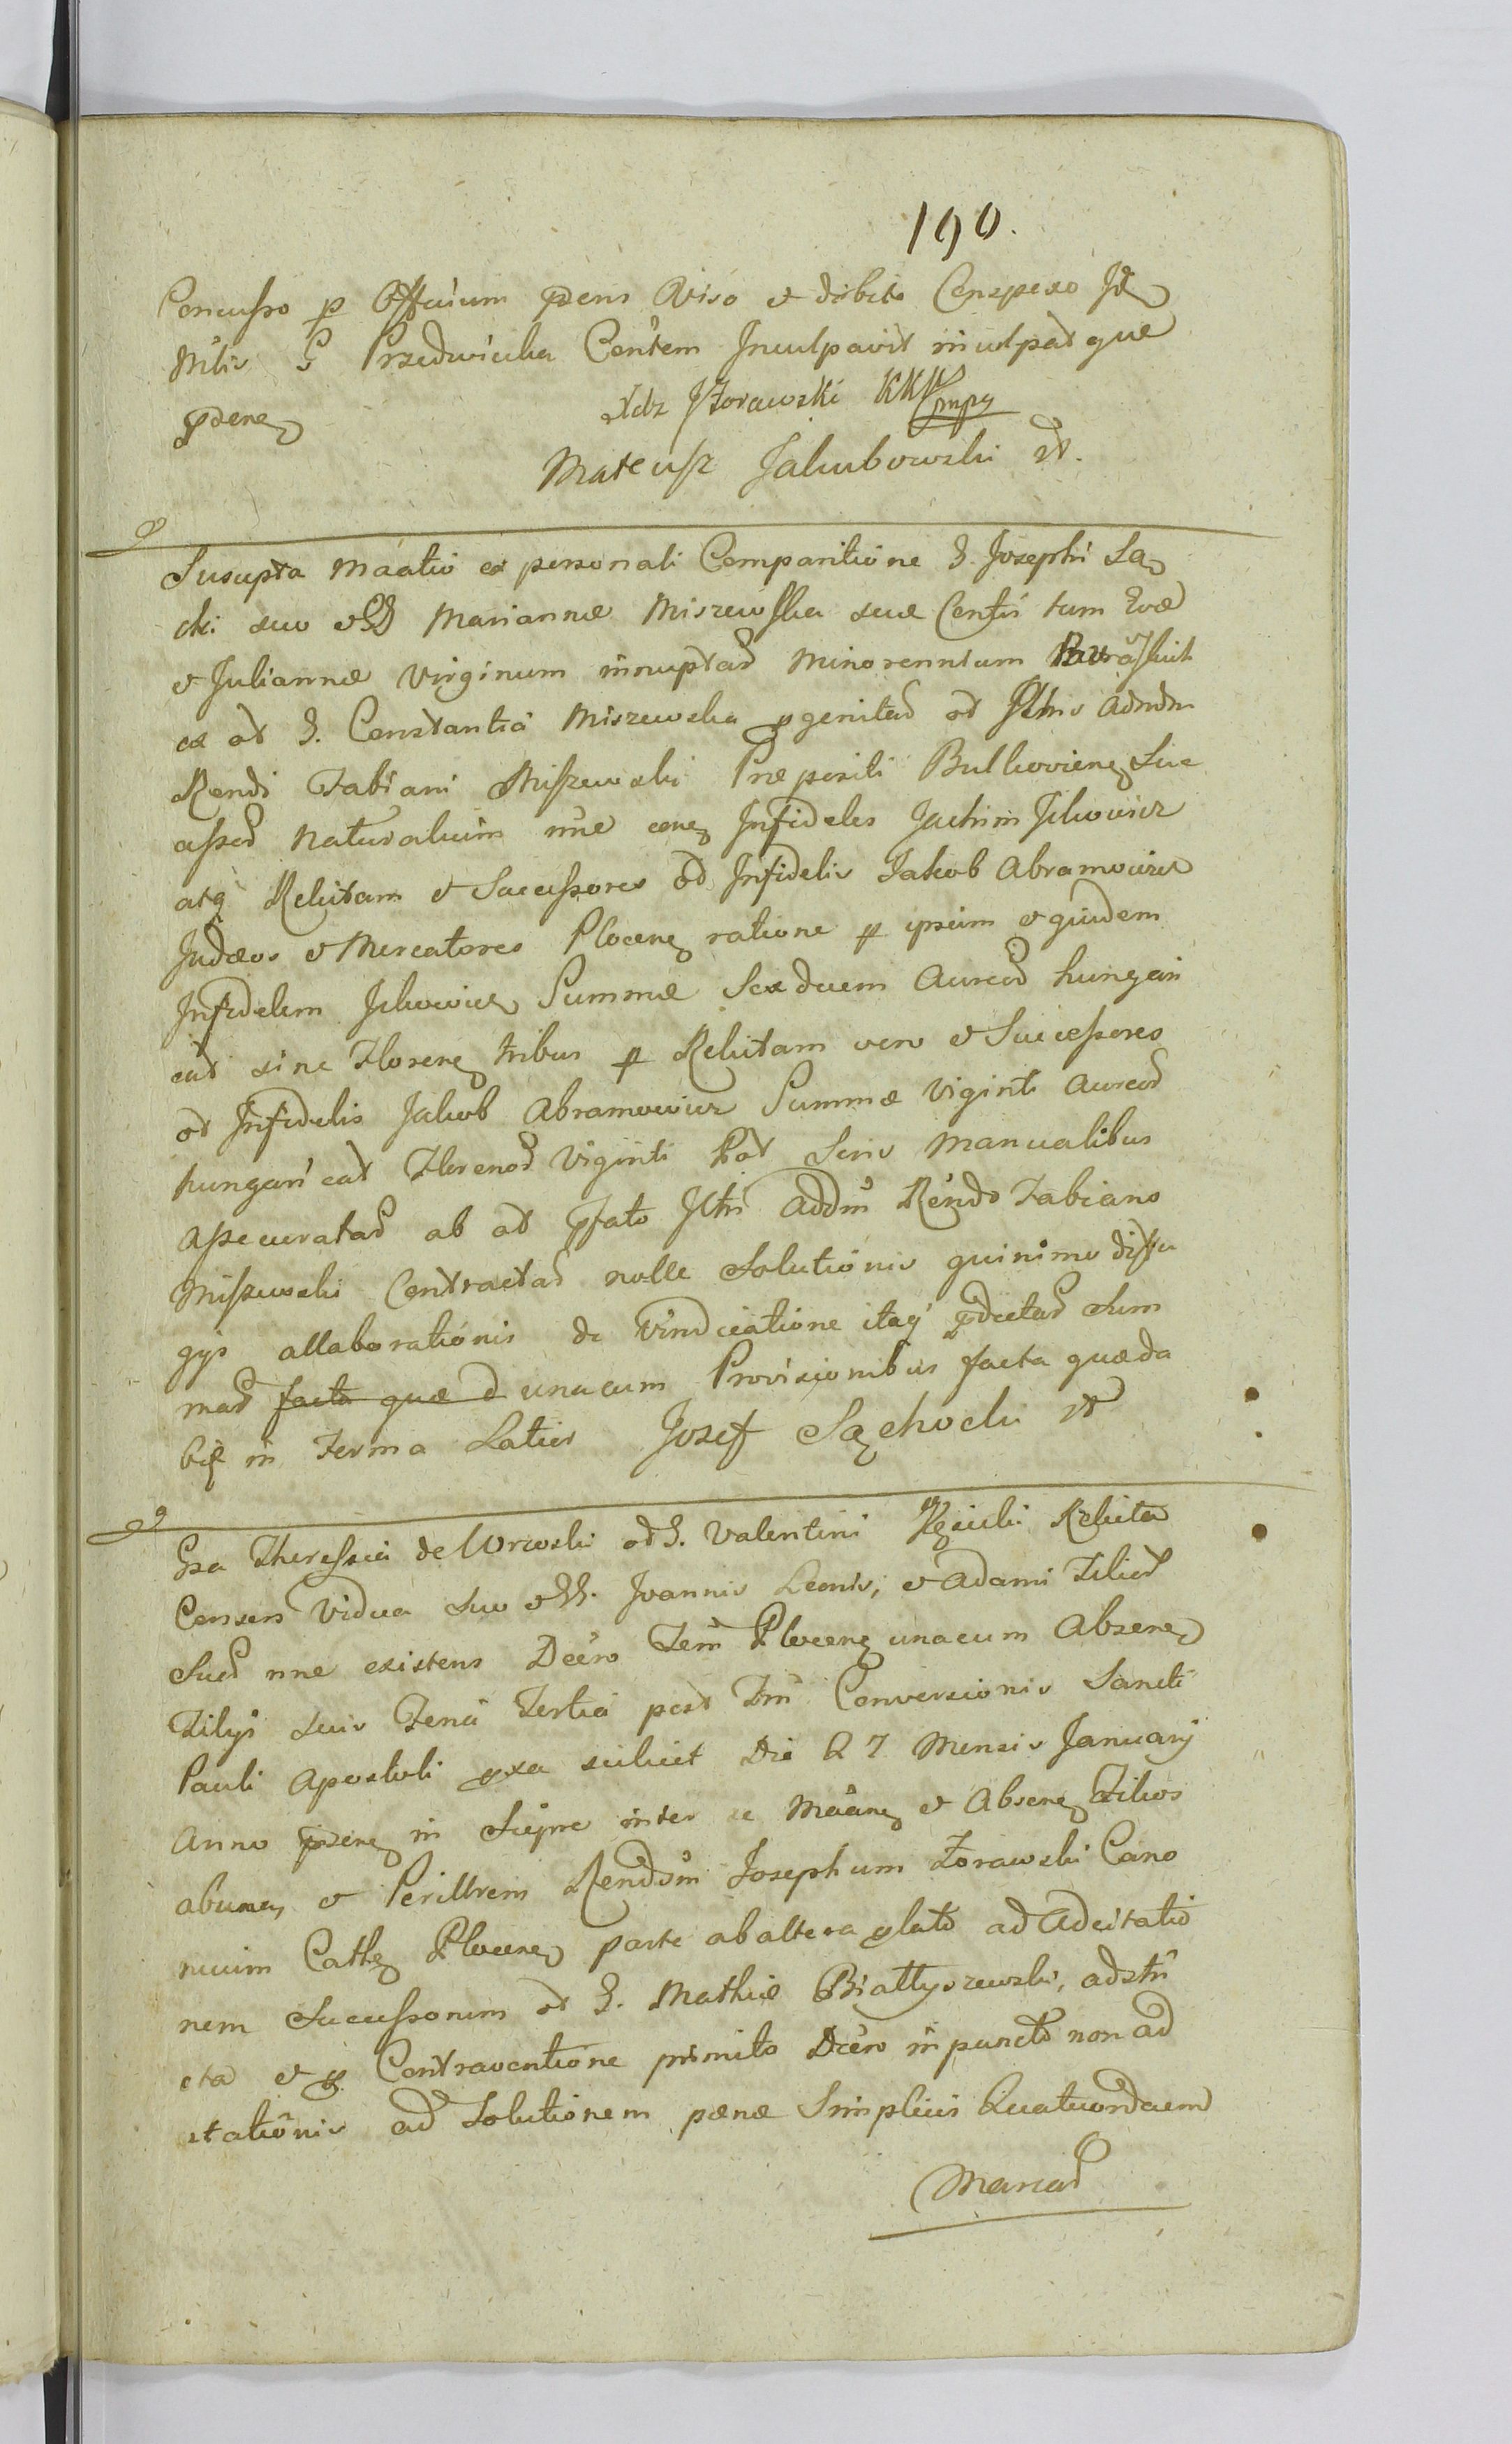 190.
Concusso p Officium pdens Aviso et debito Conspexo Id
Milis G Przedwicka Contem Inculpavit inculpatque
pdene
Xdz JZorawski KKK mpp
Mateusz Jakubowski
Suscepta Maatio ex personali Comparitione G. Josephi Sa
cki suo et GG Mariannæ Miszewska suæ Contis tum Evæ
et Juliannæ Virginum innuptar Minorennium
ex ol G. Constantia Miszewska pgenitar ol Illris Admdm
Rendi Fabiani Miszewski Præpositi Bulkoviens Suc
cessor naturalium nunc conq Infideles Jachim Jckowicz
atq Relictam et Successores ol Infidelis Jakob Abramowicz
Judæos et Mercatores Plocens ratione p ipsum et quidem
Infidelem Jckowicz Summæ Sexdecem Aureor hungari
cal sine Florens tribus p Relictam vero et Successores
ol Infidelis Jakob Abramowicz Summæ Viginti Aureor
hungarical Florenor Viginti Pol Scris Manualibus
assecuratar ab ol pfato Illri Addm Rendo Fabiano
Miszewski Contractar nolle Solutionis quinimo diffu
gys allaborationis de Vindicatione itaq pdictar Sum
mar facta quæ d unacum Provisionibus facta quæda
bit in Forma Latior Josef Sączhocki
Gsa Theressia de Wroski ol G. Valentini Relicta
Consors Vidua suo et GG. Joannis Leonis, et Adami Filior
Suor nne existens Decro Terri Plocens unacum Absens
Filys suis Feria Tertia post Fm Conversionis Sancti
Pauli Apostoli pxa scilicet Die 27 Mensis January
Anno psens in Sujne inter se Maans et Absens Filios
abunas et Perillrem Rendum Josephum Zorawski Cano
nicum Cathes Plocens parte ab altera plato ad Adcitatio
nem Successorum ol G. Mathiæ Białłyszewski, adstri
cta et p Contraventione primito Decro in puncto non ad
stationis ad Solutionem pænæ Simplicis Quatuordecem
Marcar